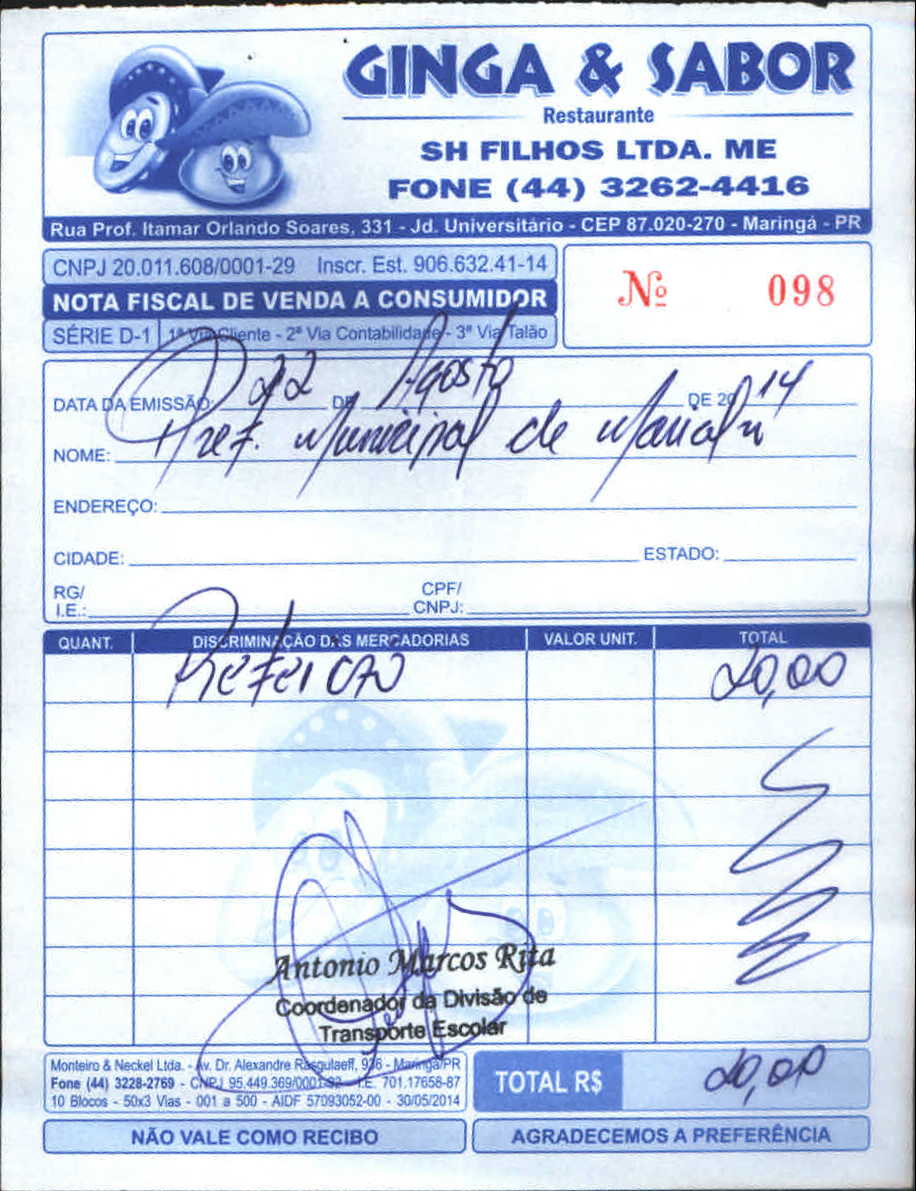 GINGA & SABOR
Restaurante
SH FILHOS LTDA. ME
FONE (44) 3262-4416
Rua Prof. Itamar Orlando Soares, 331 - Jd. Universitário - CEP 87.020-270 - Maringá - PR
CNPJ 20.011.608/0001-29 Inscr. Est. 906.632.41-14
Nº 098
NOTA FISCAL DE VENDA A CONSUMIDOR
SÉRIE D-1 1ª Via Cliente - 2ª Via Contabilidade - 3ª Via Talão
DATA DA EMISSÃO: 22 DE Agosto DE 2014
NOME: Pref. Municipal de Marialva
ENDEREÇO:
CIDADE: ESTADO:
RG/ I.E.: CPF/ CNPJ:
QUANT. DISCRIMINAÇÃO DAS MERCADORIAS VALOR UNIT. TOTAL
Refeição 20,00
Antonio Marcos Rita
Coordenador da Divisão de
Transporte Escolar
Monteiro & Neckel Ltda. - Av. Dr. Alexandre Rasgulaeff, 926 - Maringá/PR
Fone (44) 3228-2769 - CNPJ 95.449.369/0001-92 - I.E. 701.17658-87
10 Blocos - 50x3 Vias - 001 a 500 - AIDF 57093052-00 - 30/05/2014
TOTAL R$ 20,00
NÃO VALE COMO RECIBO
AGRADECEMOS A PREFERÊNCIA